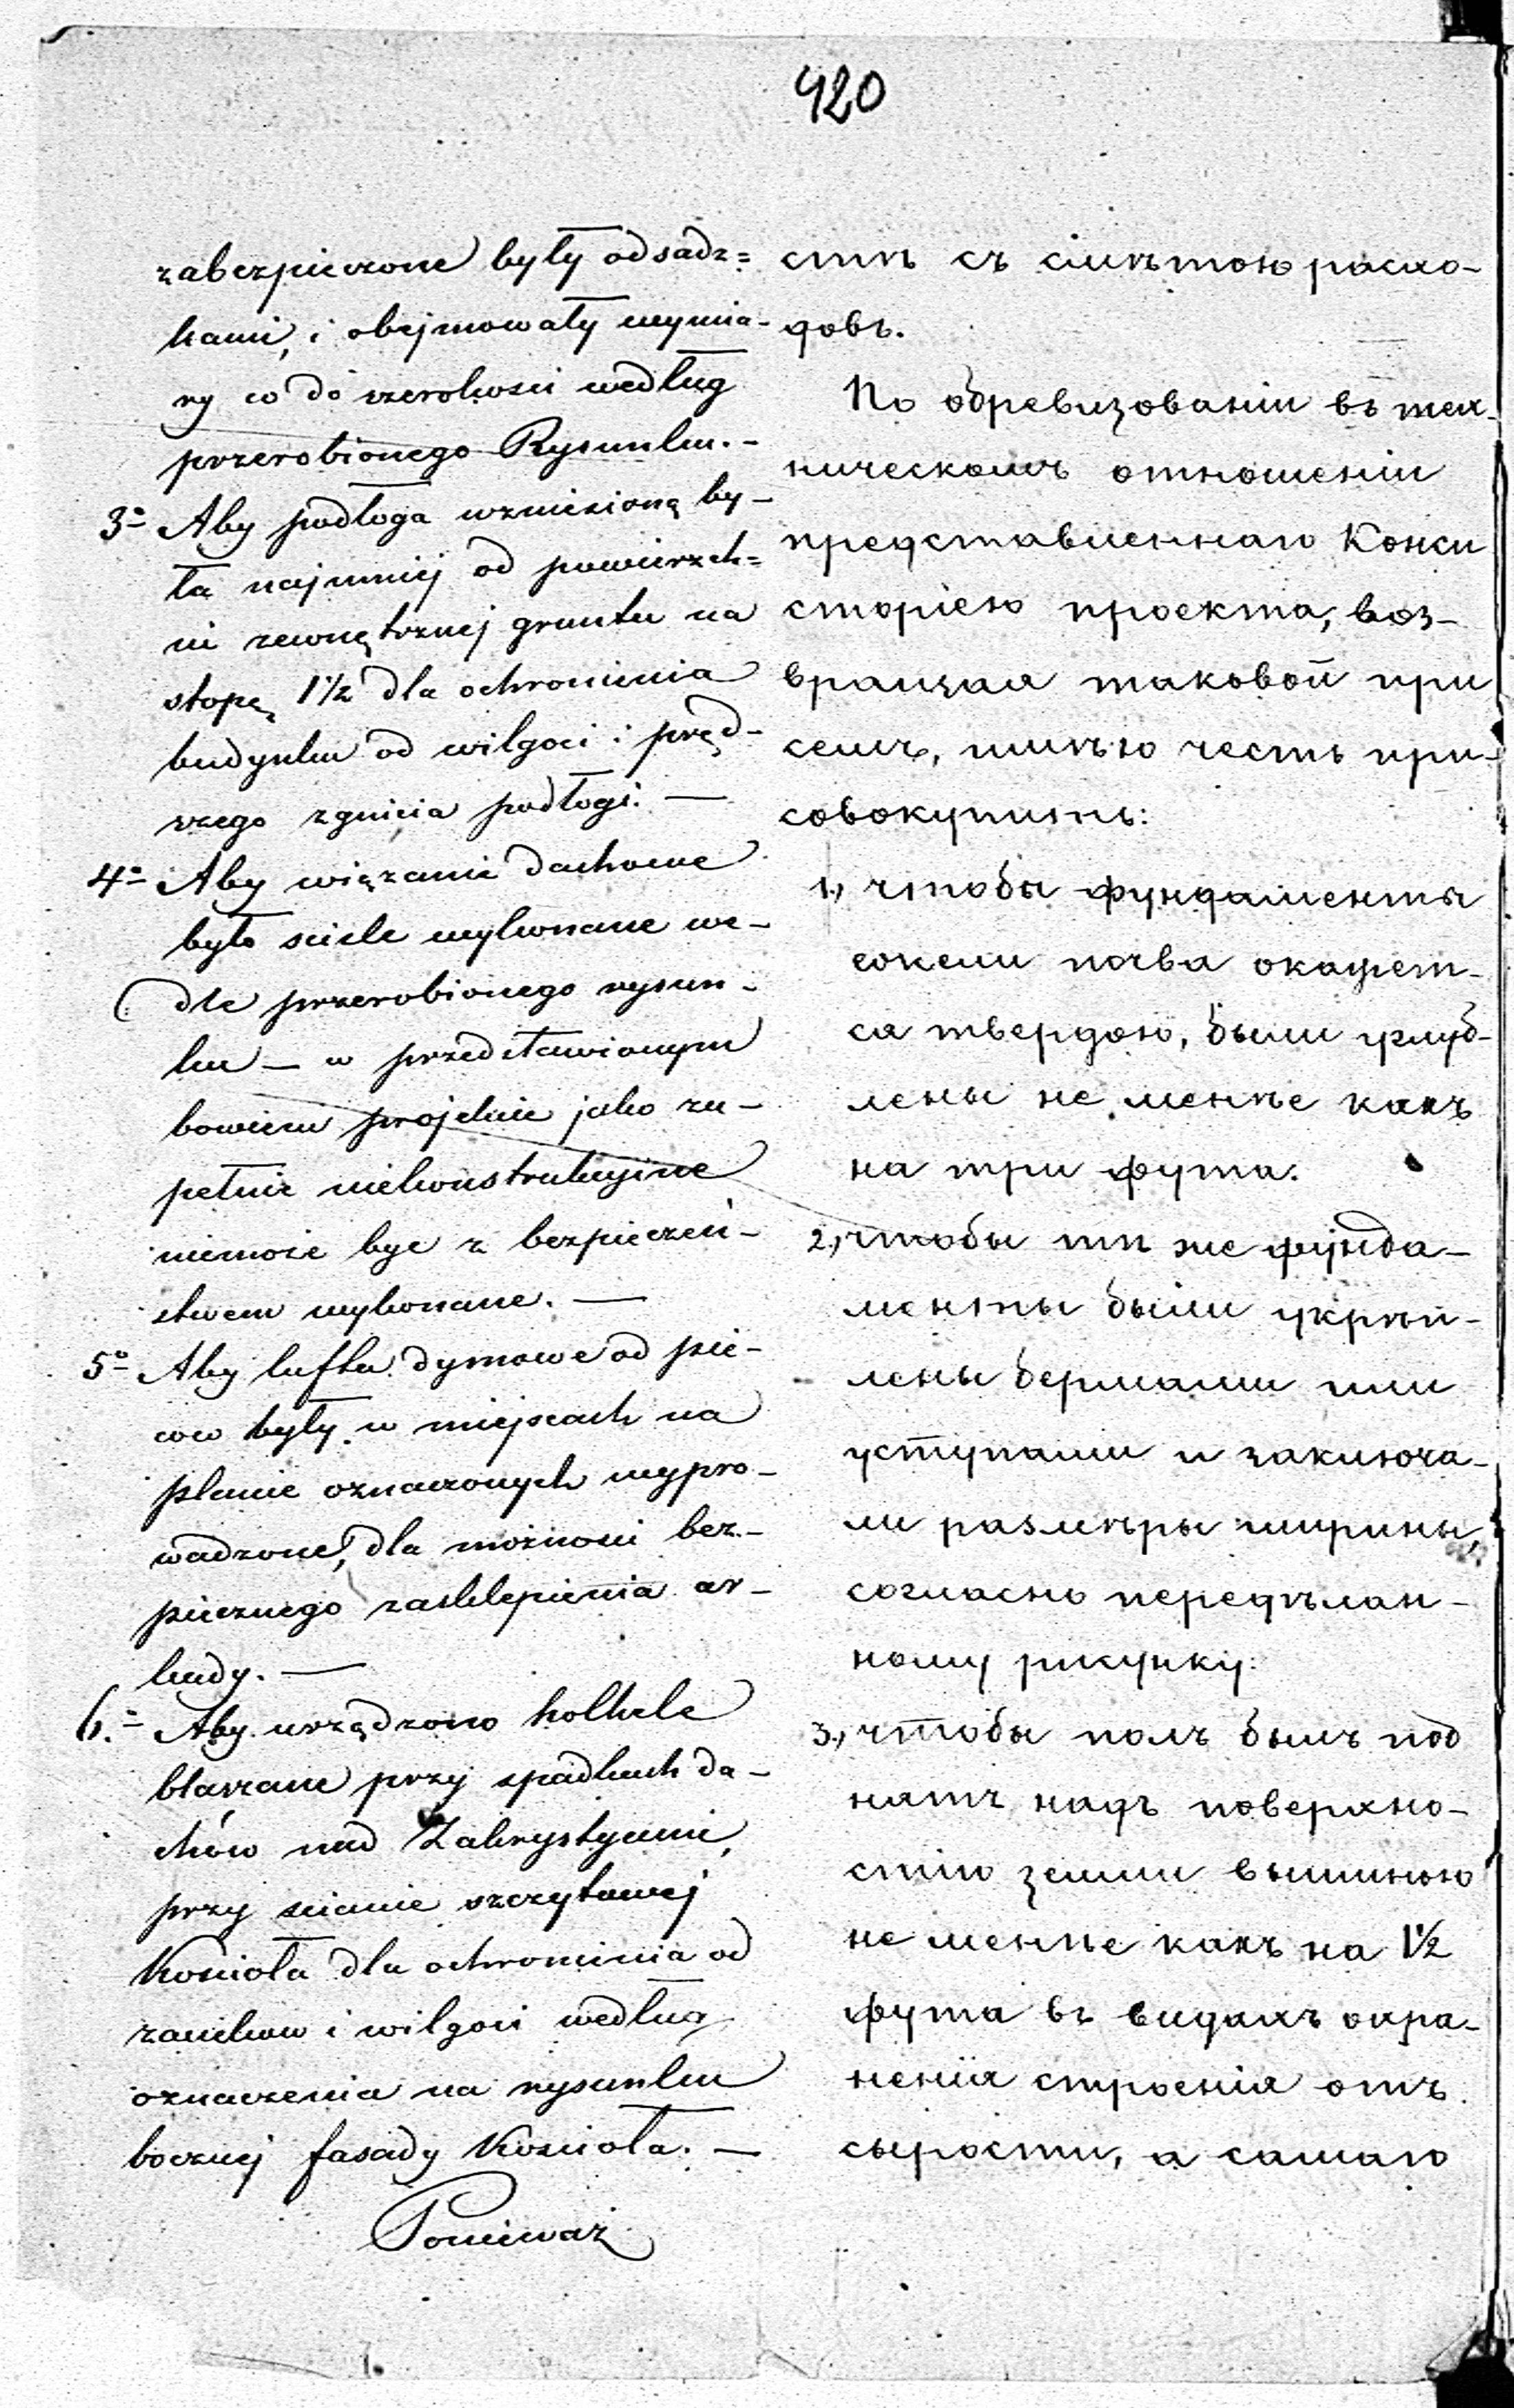 420
zabezpieczone były odsadz=
kami, i obejmowały wymia-
ry co do szerokosci według
przerobionego Rysunku.-
3º Aby podłoga wzniesioną by-
ła najmniej od powierzch=
ni zewnętrznej gruntu na
stopę 1½ dla ochronienia
budynku od wilgoci i pręd-
szego zgnicia podłogi. —
4º Aby wiązanie dachowe
było scisle wykonane we-
dle przerobionego rysun-
ku — w przedstawionym
bowiem projekcie jako zu-
pełnie niekonstrukcyjne
niemoże byc z bezpieczeń-
stwem wykonane. —
5º Aby lufta dymowe od pie-
ców były w miejscach na
planie oznaczonych wypro-
wadzone, dla możnosci bez-
piecznego zasklepienia ar-
kady. —
6.º Aby urządzono kolkele
blaszane przy spadkach da-
chów nad Zakrystyami,
przy scianie szczytowej
Kościoła dla ochronienia od
zacieków i wilgoci według
oznaczenia na rysunku
bocznej fasady Kościoła. —
Ponieważ
стѣ съ смѣтою расхо-
довъ.
По обревизованіи въ тех-
ническомъ отношеніи
представленнаго Конси
сторіею проекта, воз-
вращая таковой при
семъ, имѣю честь при-
совокупить:
1., чтобы фундаменты
если почва окажет-
ся твердою, были углуб-
лены не менѣе какъ
на три фута.
2., чтобы тѣ же фунда-
менты были укрѣп-
лены бермами или
уступами и заключа-
ли размѣры ширины,
согласно передѣлан-
ному рисунку.
3., чтобы полъ былъ под
нятъ надъ поверхно-
стію земли вышиною
не менѣе какъ на 1½
фута въ видахъ охра-
ненія строенія отъ
сырости, а самаго